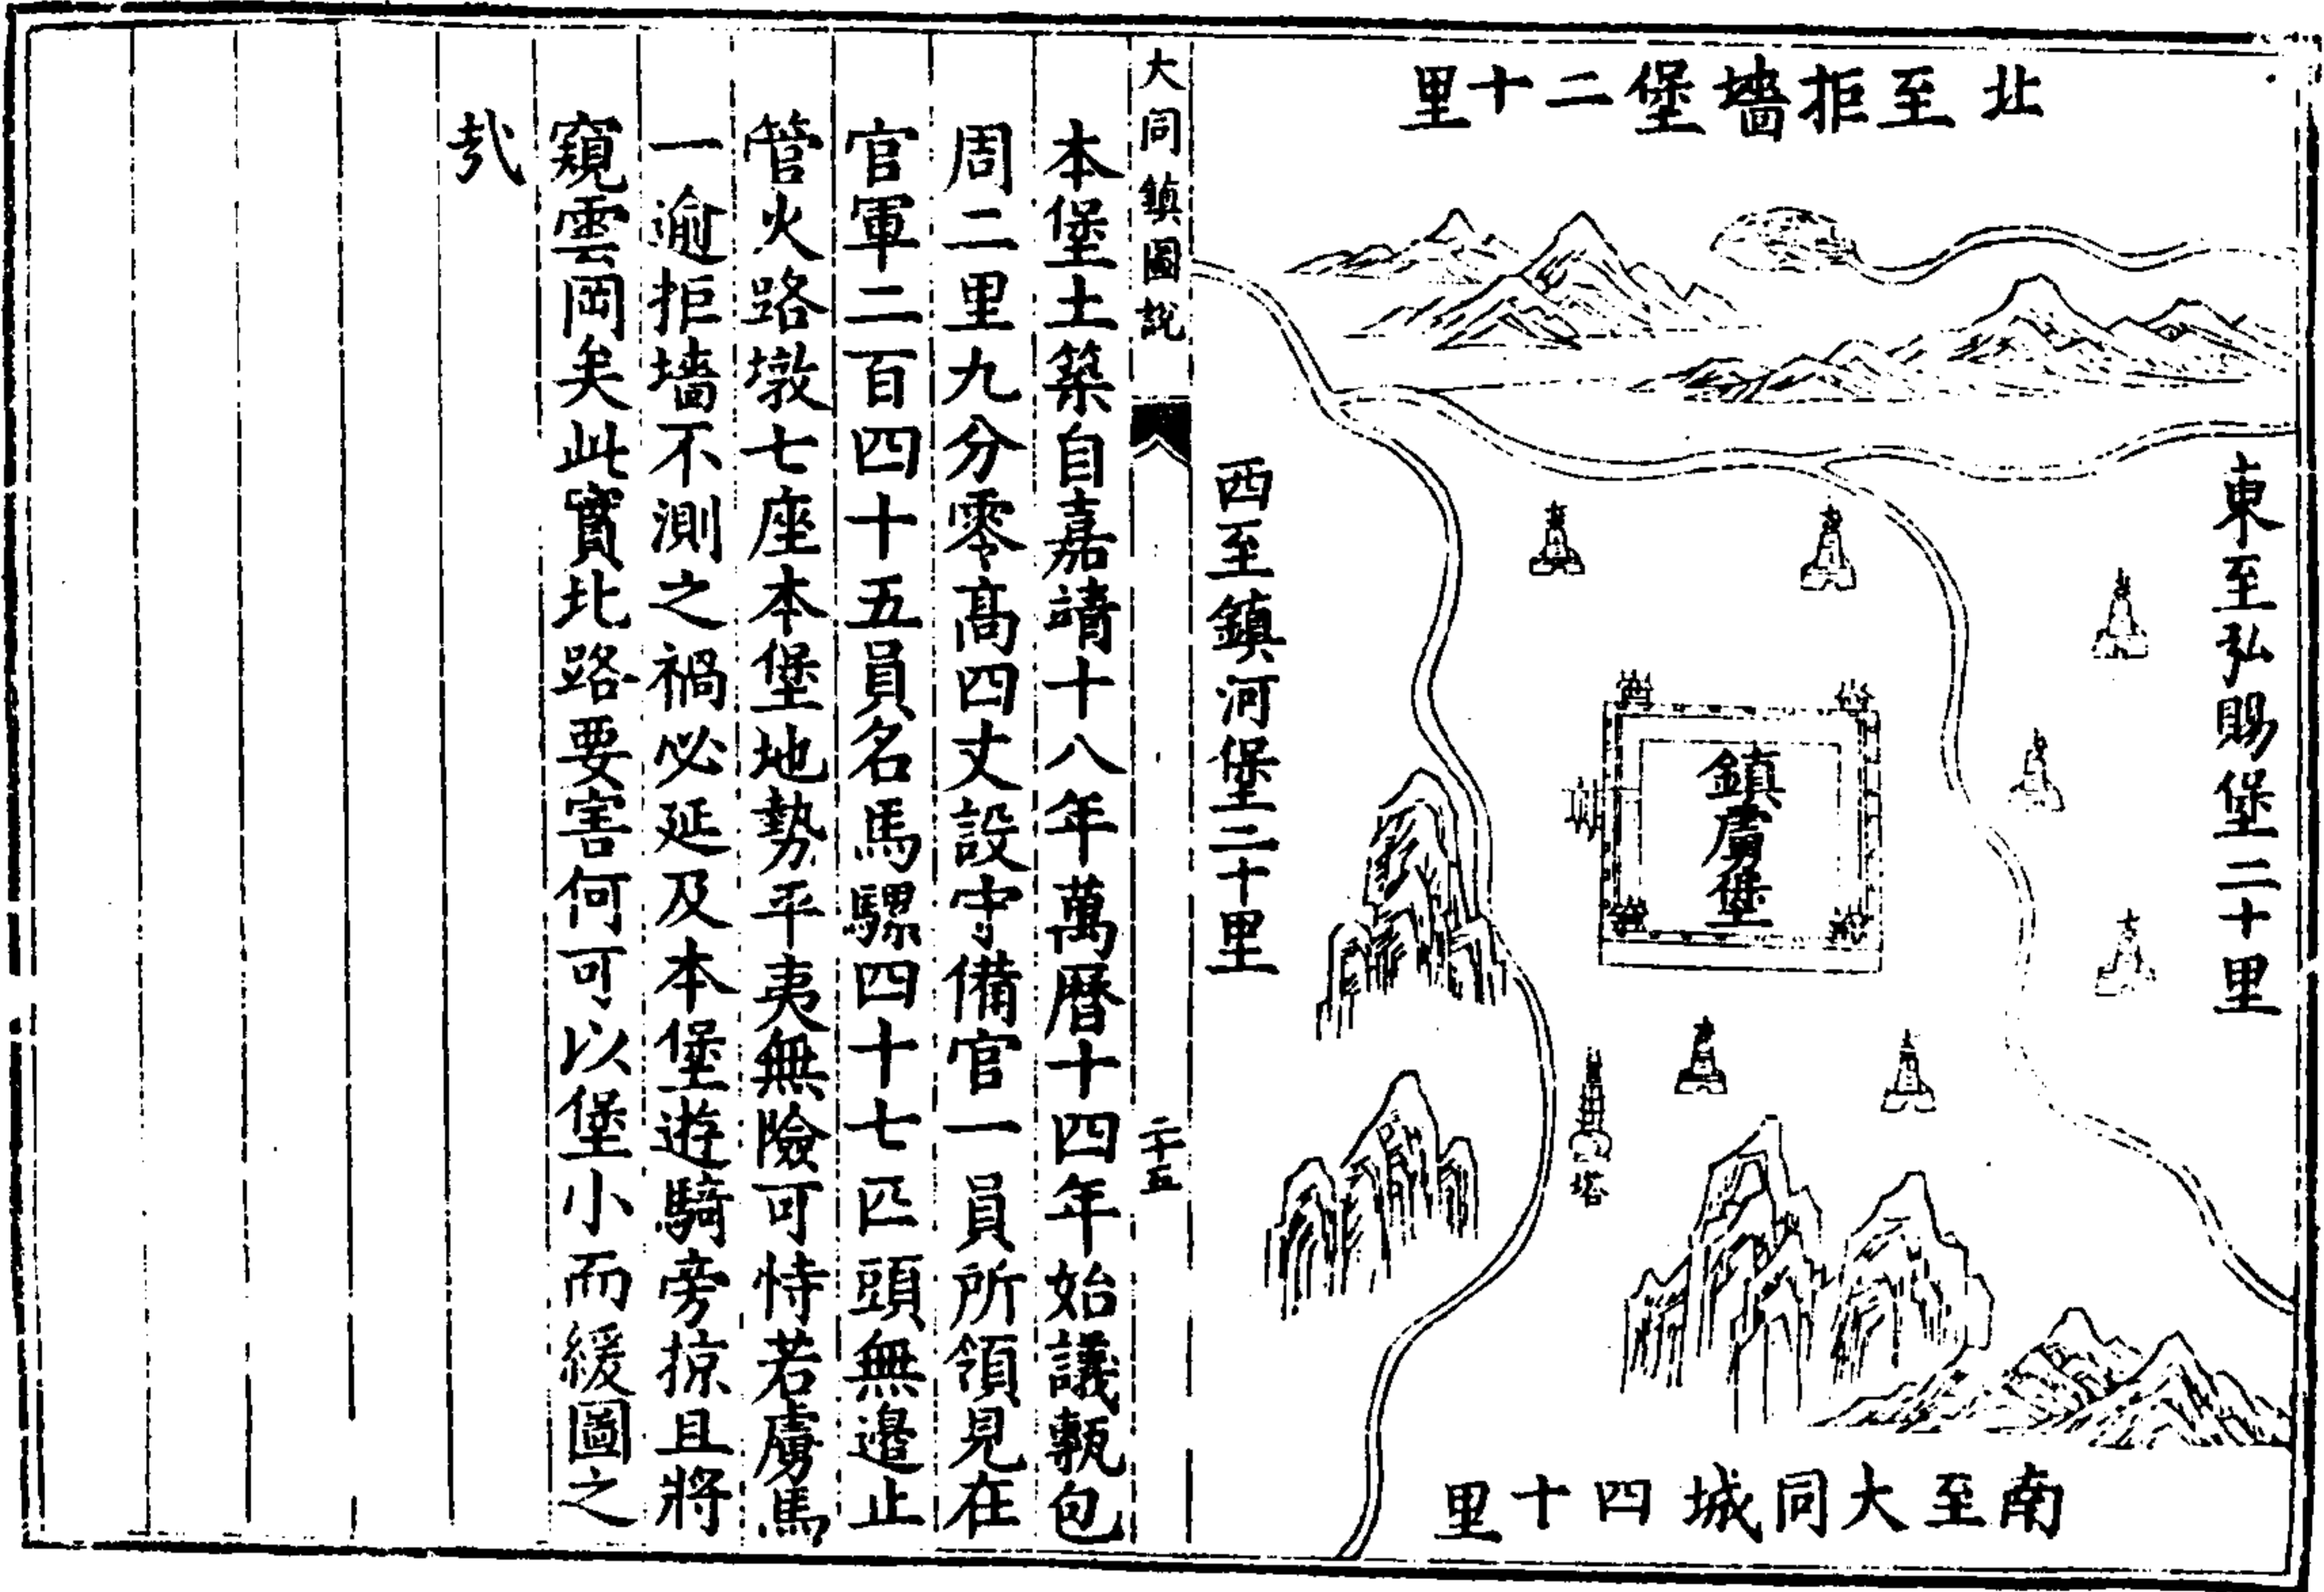 北至拒墻堡二十里
東至弘賜堡二十里
鎮虜堡
塔
南至大同城四十里
西至鎮河堡二十里
大同鎮圖說
二十五
本堡土築自嘉靖十八年萬曆十四年始議甎包
周二里九分零高四丈設守備官一員所領見在
官軍二百四十五員名馬騾四十七匹頭無邊止
管火路墩七座本堡地勢平夷無險可恃若虜馬
一逾拒墻不測之禍必延及本堡遊騎旁掠且將
窺雲岡矣此實北路要害何可以堡小而緩圖之
㢤